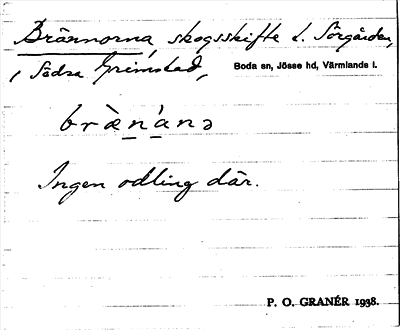 Brännorna, skogsskifte t. Sörgården,
i Södra Grimstad,
Boda sn, Jösse hd, Värmlands l.
brànána
Ingen odling där.
P. O. GRANÉR 1938.